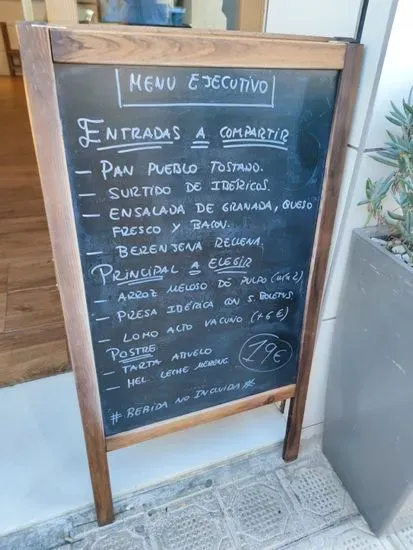 MENU EJECUTIVO
ENTRADAS A COMPARTIR
- PAN PUEBLO TOSTADO.
- SURTIDO DE IBÉRICOS.
- ENSALADA DE GRANADA, QUESO
FRESCO Y BACON.
- BERENJENA RELLENA.
PRINCIPAL A ELEGIR
- ARROZ MELOSO DE PULPO (MIN 2)
- PRESA IBÉRICA CON S. BOLETUS
- LOMO ALTO VACUNO (+6€)
POSTRE
- TARTA ABUELO
- HEL. LECHE MERENG.
19€
# BEBIDA NO INCLUIDA #